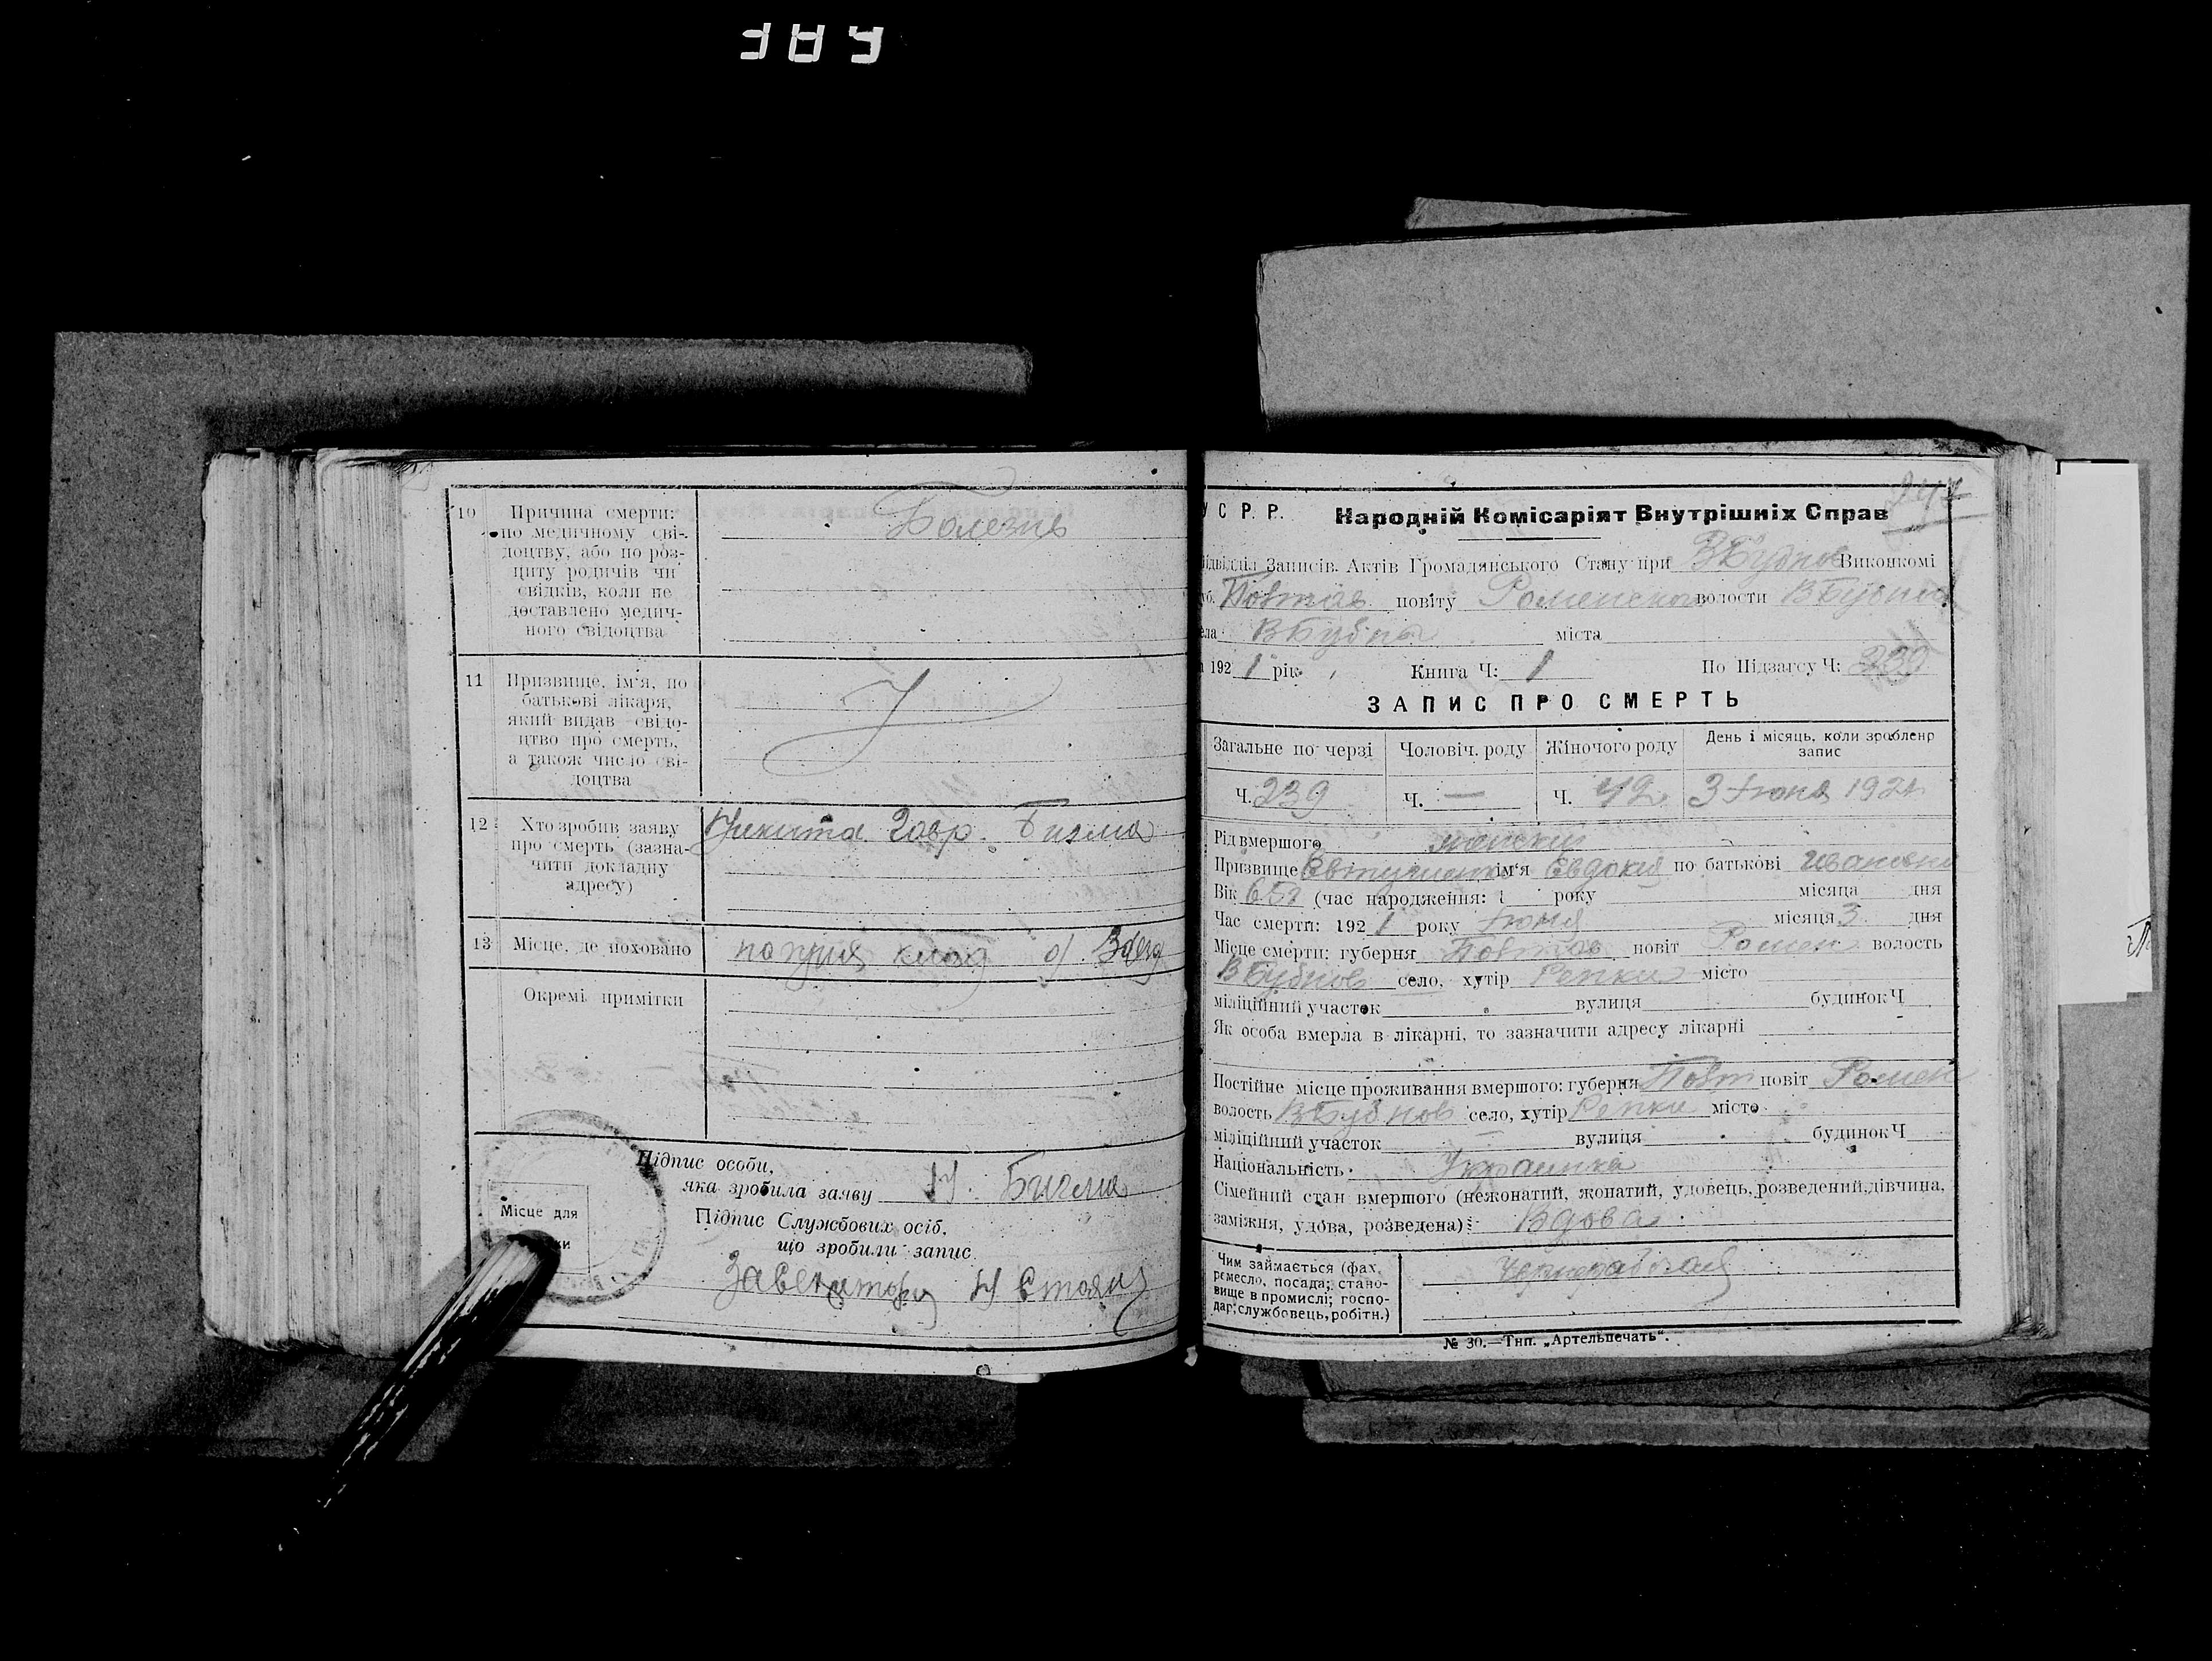 10 Причина смерти:
по медичному сві-
доцтву, або по роз-
питу родичів чи
свідків, коли не
доставлено медич-
ного свідоцтва
Болезнь
11 Призвище, ім'я, по
батькові лікаря,
який видав свідо-
цтво про смерть,
а також число сві-
доцтва
12 Хто зробив заяву
про смерть (зазна-
чити докладну
адресу)
Никита Гавр.
13 Місце, де поховано
Окремі примітки
Підпис особи,
яка зробила заяву
Місце для
Підпис Службових осіб,
що зробили запис.
У С Р. Р. Народній Комісаріят Внутрішніх Справ
Підвідділ Записів Актів Громадянського Стану при ВБубнов Виконкомі
Полтав повіту Роменского волости ВБубнов
ВБубни міста
192 1 рік Книга Ч: 1 По Підзагсу Ч: 239
ЗАПИС ПРО СМЕРТЬ
Загальне по черзі Чоловіч. роду Жіночого роду День і місяць, коли зроблено
запис
Ч. 239 Ч. — Ч. 42 3 Июня 1921
Рід вмершого женский
Призвище Евтушенко ім'я Евдокия по батькові Ивановна
Вік 65 (час народження: 1 року місяца дня
Час смерти: 192 1 року Июня місяця 3 дня
Місце смерти: губерня Полтав повіт Ромен волость
ВБубнов село, хутір Репки місто
міліційний участок вулиця будинок Ч
Як особа вмерла в лікарні, то зазначити адресу лікарні
Постійне місце проживання вмершого: губерня Полт повіт Ромен
волость ВБубнов село, хутір Репки місто
міліційний участок вулиця будинок Ч
Національність Украинка
Сімейний стан вмершого (нежонатий, жонатий, удовець, розведений, дівчина,
заміжня, удова, розведена): Вдова
Чим займається (фах,
ремесло, посада; стано-
вище в промислі; госпо-
дар, службовець, робітн.)
Чернорабочая
№ 30.—Тип. „Артельпечать“.